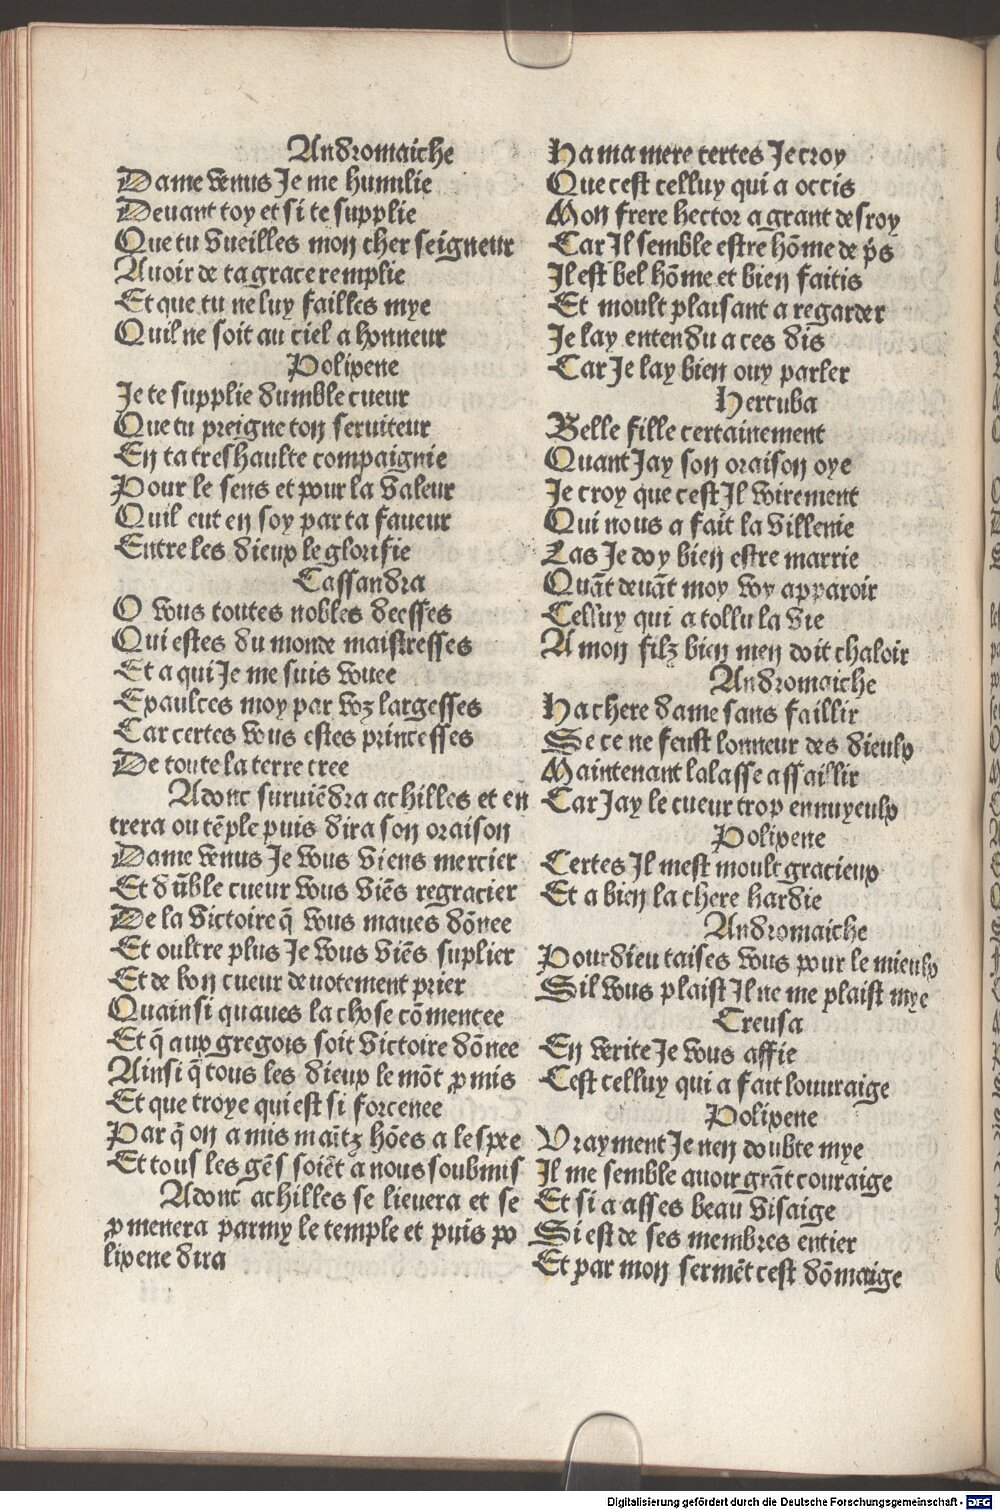 Andromaiche
Dame venus Je me humilie
Deuant toy et si te supplie
Que tu vueilles mon cher seigneur
Auoir de ta grace remplie
Et que tu ne luy failles mye
Quil ne soit au ciel a honneur
Polixene
Je te supplie dumble cueur
Que tu preigne ton seruiteur
En ta treshaulte compaignie
Pour le sens et pour la valeur
Quil eut en soy par ta faueur
Entre les dieux le glorifie
Cassandra
O vous toutes nobles deesses
Qui estes du monde maistresses
Et a qui Je me suis vouee
Exaulces moy par voz largesses
Car certes vous estes princesses
De toute la terre cree
Adonc suruiēdra achilles et en
trera ou tēple puis dira son oraison
Dame venus Je vous viens mercier
Et dūble cueur vous viēs regracier
De la victoire q̄ vous maues dōnee
Et oultre plus Je vous viēs suplier
Et de bon cueur deuotement prier
Quainsi quaues la chose cōmencee
Et q̄ aux gregois soit victoire dōnee
Ainsi q̄ tous les dieux le mōt ꝓmis
Et que troye qui est si forcenee
Par q̄ on a mis maītz hōes a lespee
Et tous les gēs soiēt a nous soubmis
Adonc achilles se lieuera et se
ꝓmenera parmy le temple et puis po
lixene dira
Ha ma mere certes Je croy
Que cest celluy qui a occis
Mon frere hector a grant desroy
Car Il semble estre hōme de p̄s
Il est bel hōme et bien faitis
Et moult plaisant a regarder
Je lay entendu a ces dis
Car Je lay bien ouy parler
Hercuba
Belle fille certainement
Quant Jay son oraison oye
Je croy que cest Il voirement
Qui nous a fait la villenie
Las Je doy bien estre marrie
Quāt deuāt moy voy apparoir
Celluy qui a tollu la vie
A mon filz bien men doit chaloir
Andromaiche
Ha chere dame sans faillir
Se ce ne feust lonneur des dieulx
Maintenant lalasse assaillir
Car Jay le cueur trop ennuyeulx
Polixene
Certes Il mest moult gracieux
Et a bien la chere hardie
Andromaiche
Pour dieu taises vous pour le mieulx
Sil vous plaist Il ne me plaist mye
Creusa
En verite Je vous affie
Cest celluy qui a fait louuraige
Polixene
Vrayment Je nen doubte mye
Il me semble auoir grāt couraige
Et si a asses beau visaige
Si est de ses membres entier
Et par mon sermēt cest dōmaige
Digitalisierung gefördert durch die Deutsche Forschungsgemeinschaft - DFG